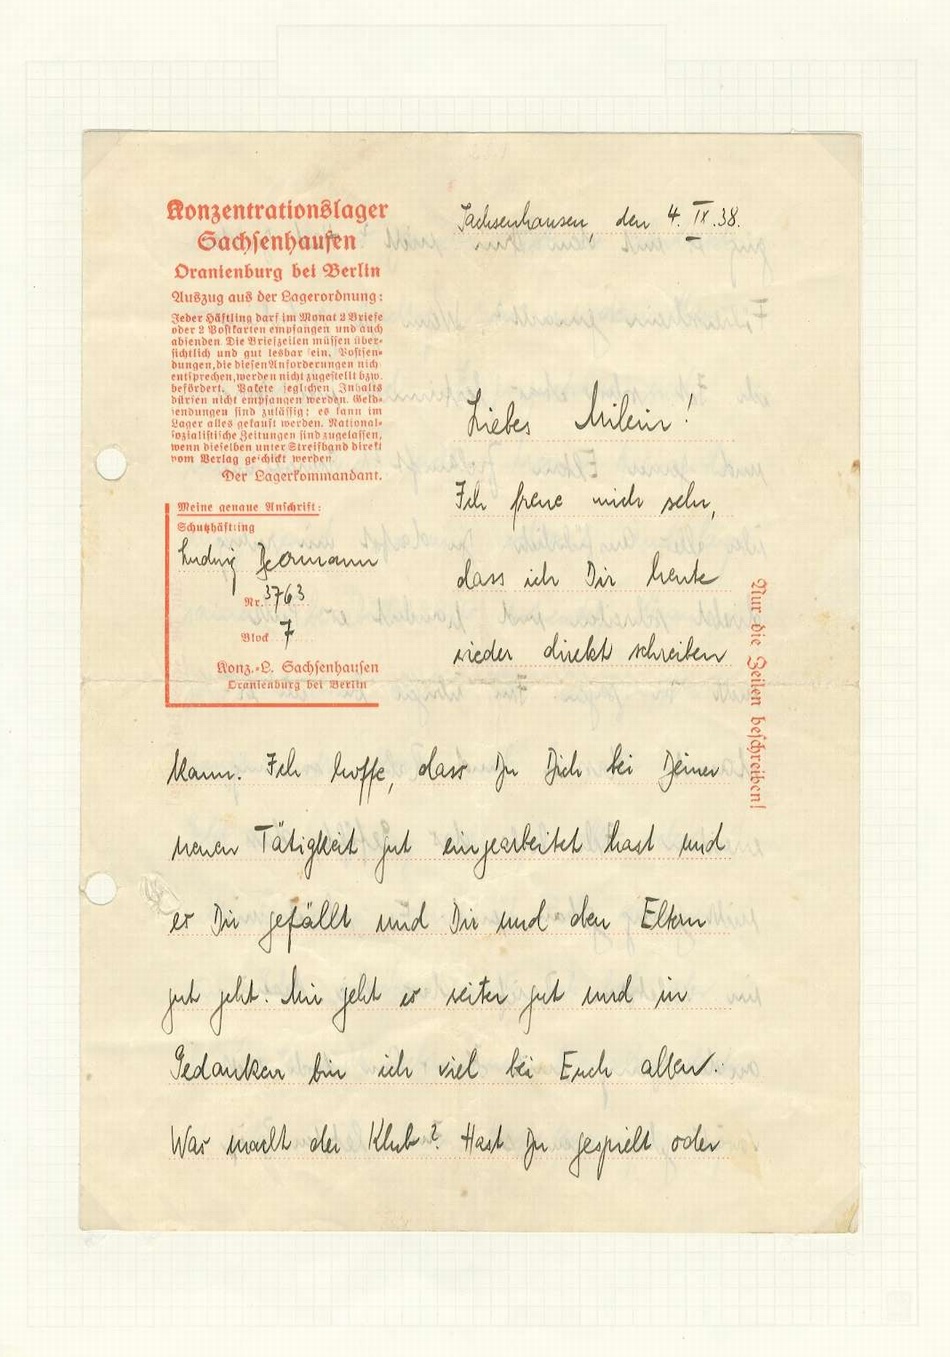 Konzentrationslager
Sachsenhausen
Oranienburg bei Berlin
Auszug aus der Lagerordnung:
Jeder Häftling darf im Monat 2 Briefe
oder 2 Postkarten empfangen und auch
absenden. Die Briefzeilen müssen über-
sichtlich und gut lesbar sein. Postsen-
dungen, die diesen Anforderungen nich
entsprechen, werden nicht zugestellt bzw.
befördert. Pakete jeglichen Inhalts
dürfen nicht empfangen werden. Geld-
sendungen sind zulässig; es kann im
Lager alles gekauft werden. National-
sozialistische Zeitungen sind zugelassen,
wenn dieselben unter Streifband direkt
vom Verlag geschickt werden.
Der Lagerkommandant.
Meine genaue Anschrift:
Schutzhäftling
Ludwig
Nr. 3763
Block 7
Konz.-L. Sachsenhausen
Oranienburg bei Berlin
Sachsenhausen, den 4. IX. 38.
Liebes Milein!
Ich freue mich sehr,
dass ich Dir heute
wieder direkt schreiben
Nur die Zeilen beschreiben!
kann. Ich hoffe, dass Du Dich bei Deiner
neuen Tätigkeit gut eingearbeitet hast und
es Dir gefällt und Dir und den Eltern
gut geht. Mir geht es weiter gut und in
Gedanken bin ich viel bei Euch allen.
Was macht der Klub? Hast Du gespielt oder